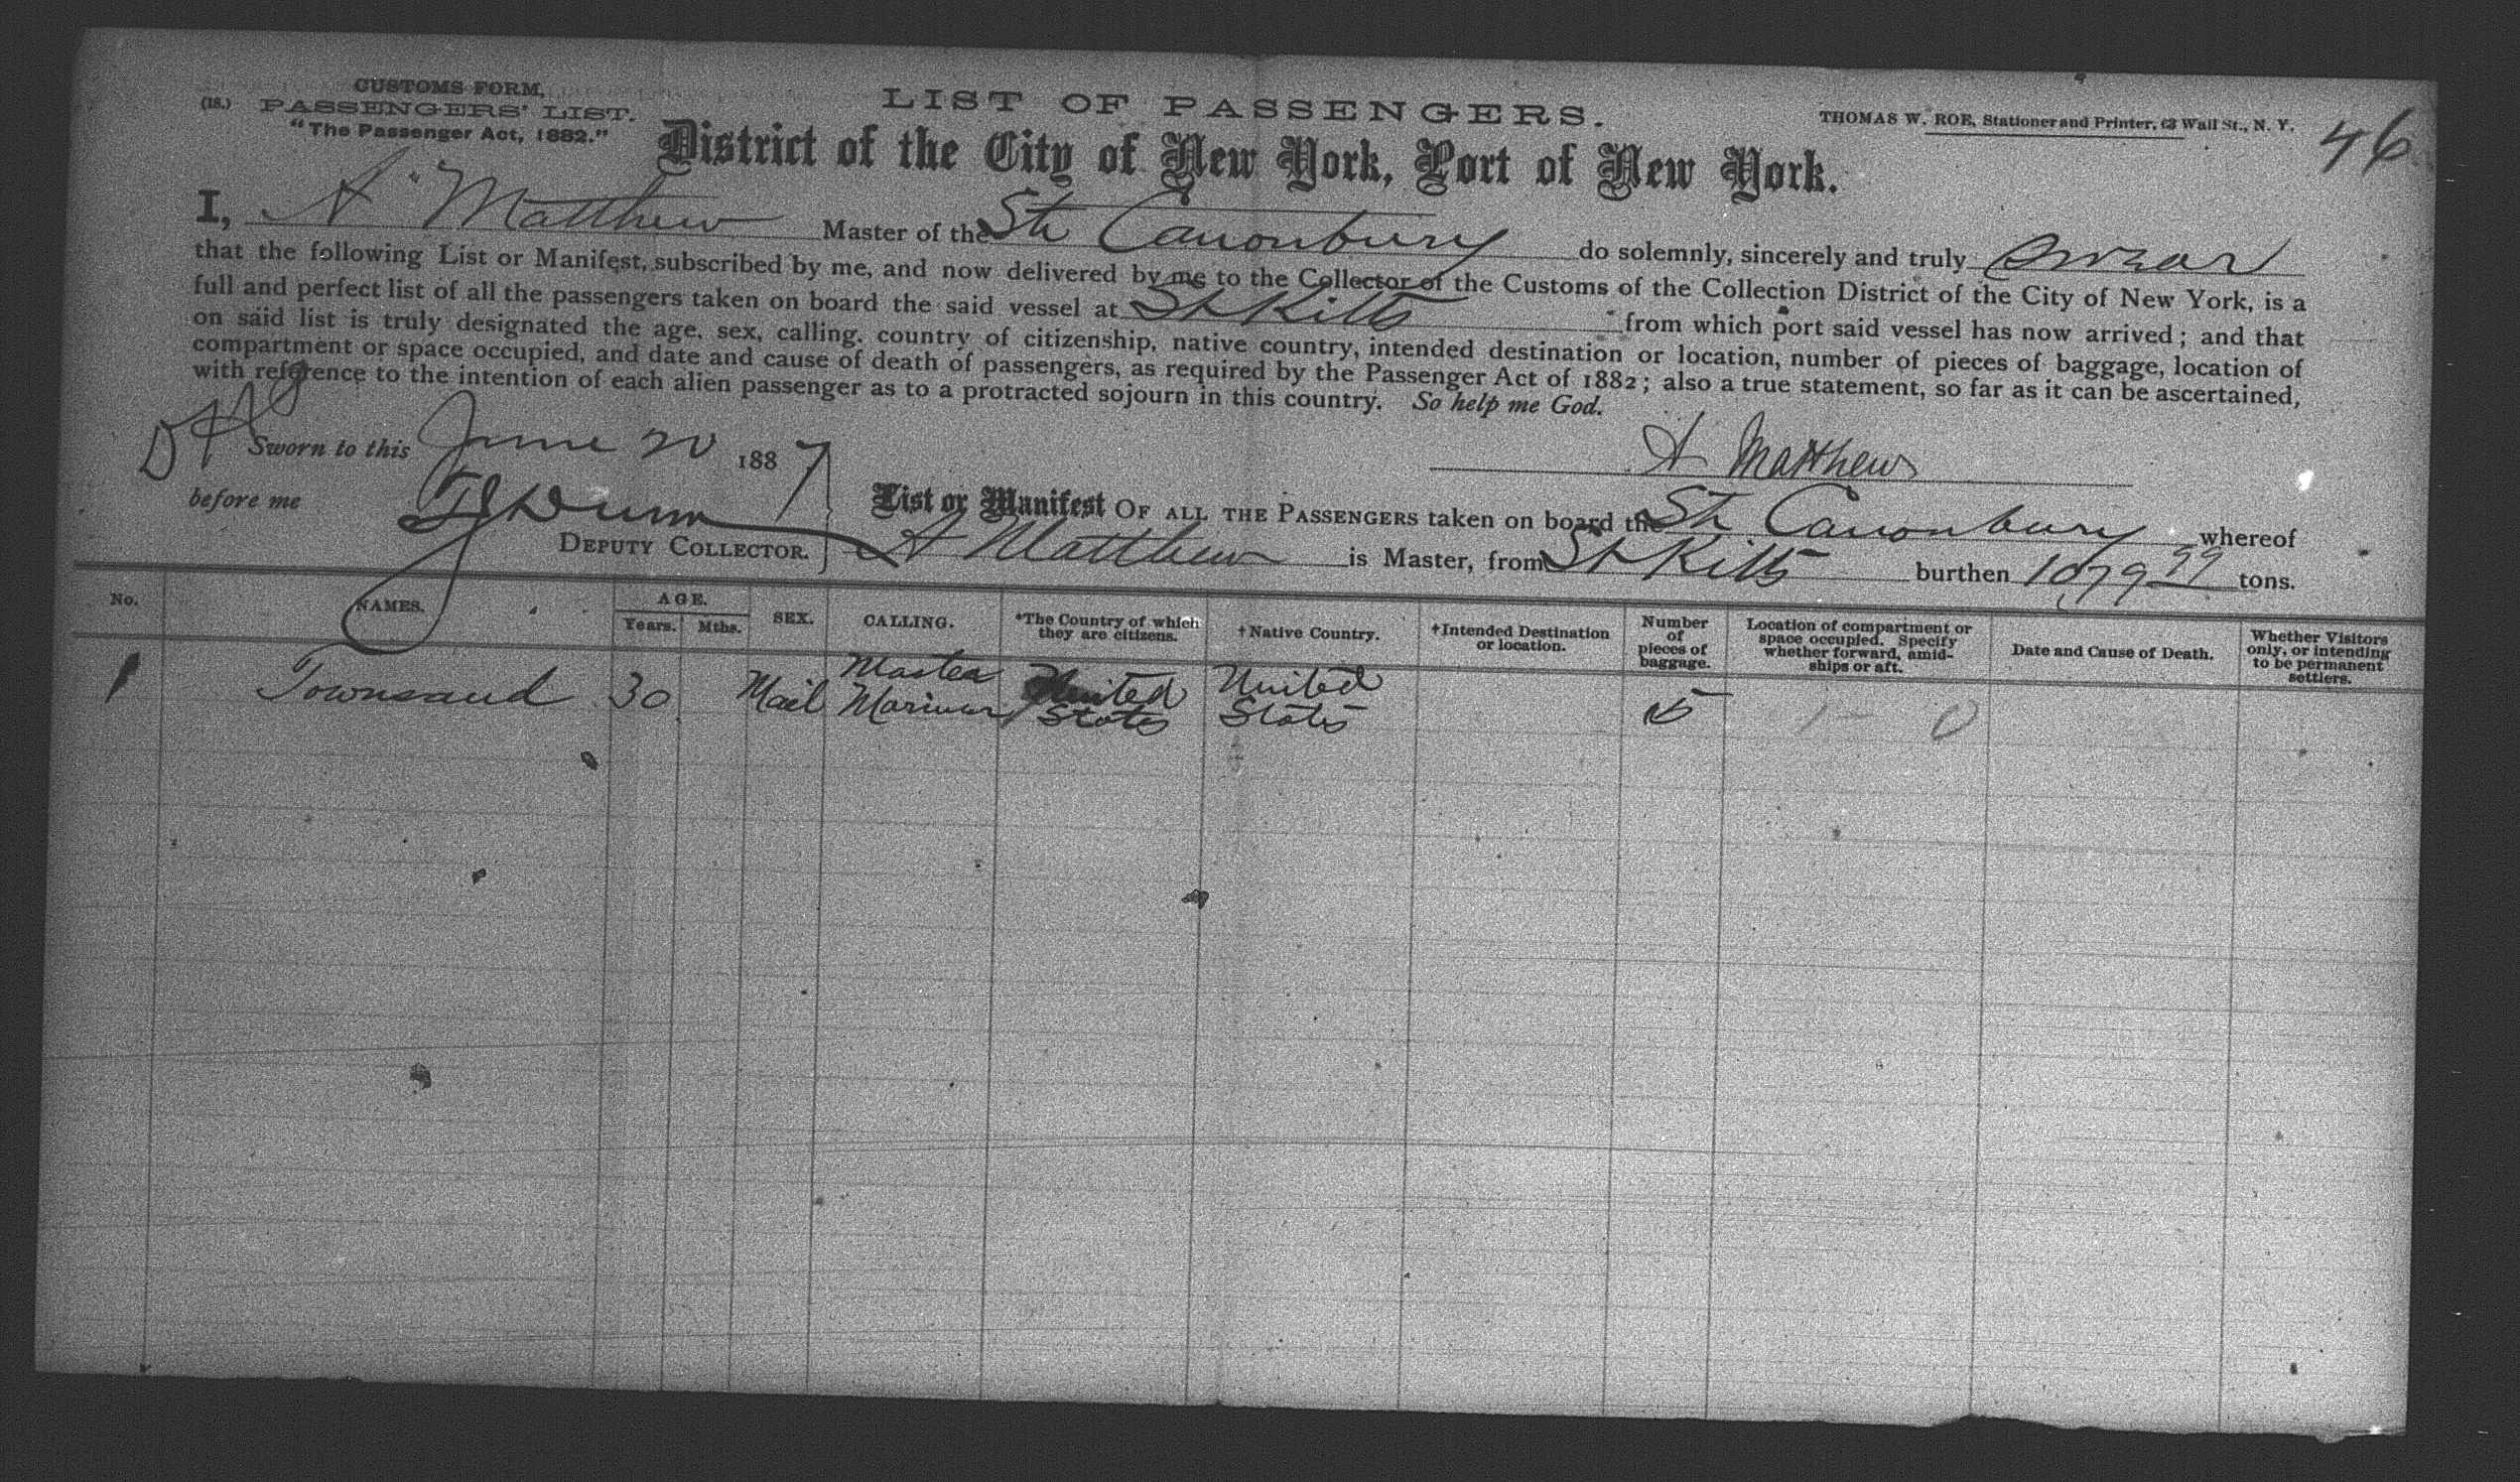 CUSTOMS FORM,
(18.) PASSENGERS' LIST.
"The Passenger Act, 1882."
LIST OF PASSENGERS.
THOMAS W. ROE, Stationer and Printer, 63 Wall St., N. Y.
46
District of the City of New York, Port of New York.
I, A Matthew Master of the Str Canonbury do solemnly, sincerely and truly swear
that the following List or Manifest, subscribed by me, and now delivered by me to the Collector of the Customs of the Collection District of the City of New York, is a
full and perfect list of all the passengers taken on board the said vessel at St Kitts from which port said vessel has now arrived; and that
on said list is truly designated the age, sex, calling, country of citizenship, native country, intended destination or location, number of pieces of baggage, location of
compartment or space occupied, and date and cause of death of passengers, as required by the Passenger Act of 1882; also a true statement, so far as it can be ascertained,
with reference to the intention of each alien passenger as to a protracted sojourn in this country. So help me God.
Sworn to this June 20 1887
A Matthews
before me
DEPUTY COLLECTOR.
List or Manifest OF ALL THE PASSENGERS taken on board the Str Canonbury whereof
A Matthew is Master, from St Kitts burthen 1079 99 tons.
No. NAMES. AGE. Years. Mths. SEX. CALLING. *The Country of which they are citizens. †Native Country. †Intended Destination or location. Number of pieces of baggage. Location of compartment or space occupied. Specify whether forward, amid-ships or aft. Date and Cause of Death. Whether Visitors only, or intending to be permanent settlers.
1 Townsand 30 Mail Master Mariner United States United States 5 1 - 0